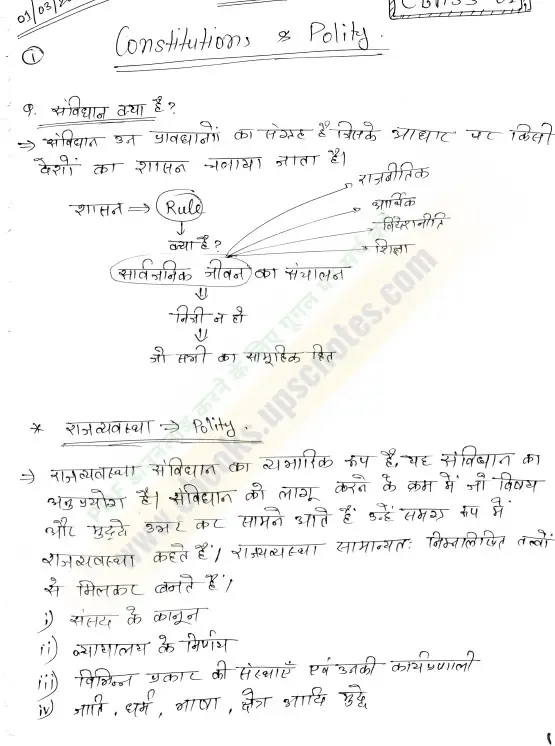 01/03/20
CLASS-01
①
Constitution, & Polity.
Q. संविधान क्या है?
⇒ संविधान उन प्रावधानों का संग्रह है जिसके आधार पर किसी
देशों का शासन चलाया जाता है।
राजनीतिक
शासन ⇒ Rule
आर्थिक
विदेशनीति
क्या है?
शिक्षा
सार्वजनिक जीवन का संचालन
⇓
निजी न हो
⇓
जो सभी का सामूहिक हित
* राजव्यवस्था → Polity.
⇒ राजव्यवस्था संविधान का व्यभारिक रूप है, यह संविधान का
अनुप्रयोग है। संविधान को लागू करने के क्रम में जो विषय
और मुद्दे उभर कर सामने आते हैं उन्हें समग्र रूप में
राजव्यवस्था कहते हैं। राजव्यवस्था सामान्यतः निम्नलिखित तत्वों
से मिलकर बनते हैं।
i) संसद के कानून
ii) न्यायालय के निर्णय
iii) विभिन्न प्रकार की संस्थाएँ एवं उनकी कार्यप्रणाली
iv) जाति, धर्म, भाषा, क्षेत्र आदि मुद्दे
1